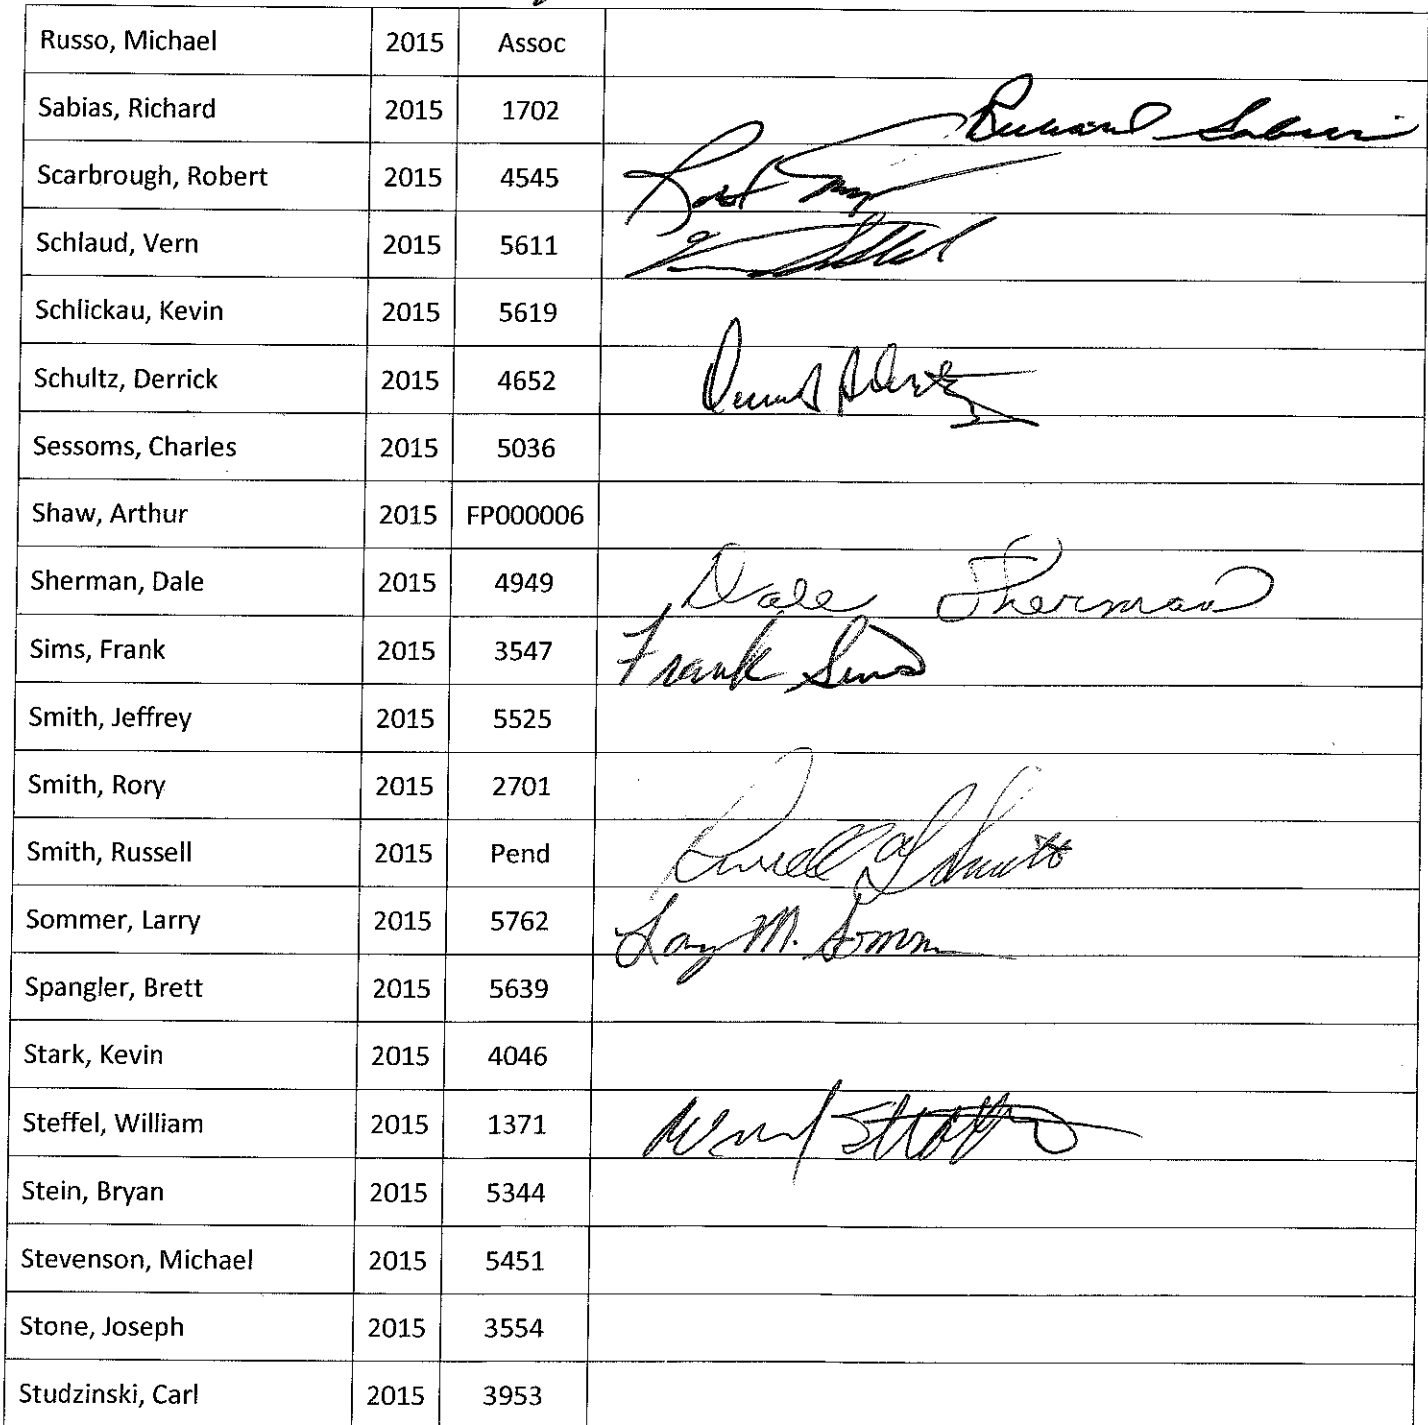 Russo, Michael 2015 Assoc
Sabias, Richard 2015 1702 Richard Sabias
Scarbrough, Robert 2015 4545
Schlaud, Vern 2015 5611
Schlickau, Kevin 2015 5619
Schultz, Derrick 2015 4652
Sessoms, Charles 2015 5036
Shaw, Arthur 2015 FP000006
Sherman, Dale 2015 4949 Dale Sherman
Sims, Frank 2015 3547 Frank Sims
Smith, Jeffrey 2015 5525
Smith, Rory 2015 2701
Smith, Russell 2015 Pend Russell Smith
Sommer, Larry 2015 5762 Larry M. Sommer
Spangler, Brett 2015 5639
Stark, Kevin 2015 4046
Steffel, William 2015 1371
Stein, Bryan 2015 5344
Stevenson, Michael 2015 5451
Stone, Joseph 2015 3554
Studzinski, Carl 2015 3953